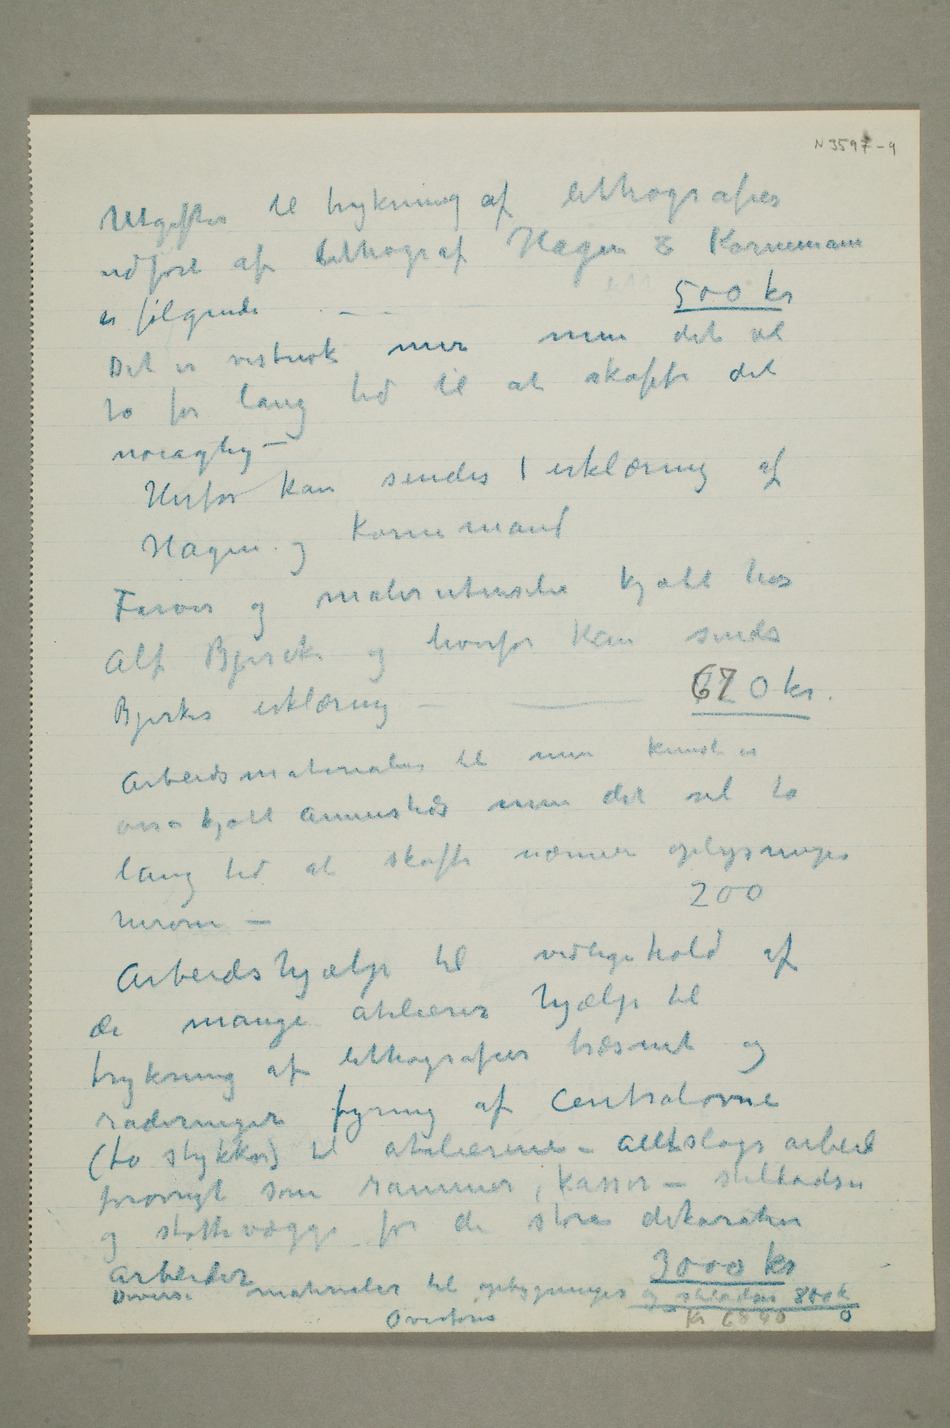 N 3597-9
Utgifter til trykning af lithografier
udført af lithograf Hagen & Kornemann
er følgende — — 500 kr
Det er vistnok mer men det vil
ta for lang tid til at skaffe det
nøiagtig –
Herfor kan sendes 1 erklæring af
Hagen og Kornemand
Farver og malerutensilier kjøbt hos
Alf Bjercke og hvorfor kan sendes
Bjerkes erklæring – — 670 kr.
Arbeidsmaterialier til min kunst er
også kjøbt annensteds men det vil ta
lang tid at skaffe nærmere oplysninger
herom – 200
Arbeidshjælp til vedligehold af
de mange atelierer hjælp til
trykning af lithografier træsnit og
raderinger fyring af Centralovne
(to stykker) til atelierene – allslags arbeid
forøvrigt som rammer, kasser – stilladser
og støttevægge for de store dekorative
Arbeider 3000 kr
Diverse materialer til opbygninger og stilladser 800 k
Overføres kr 6840 0